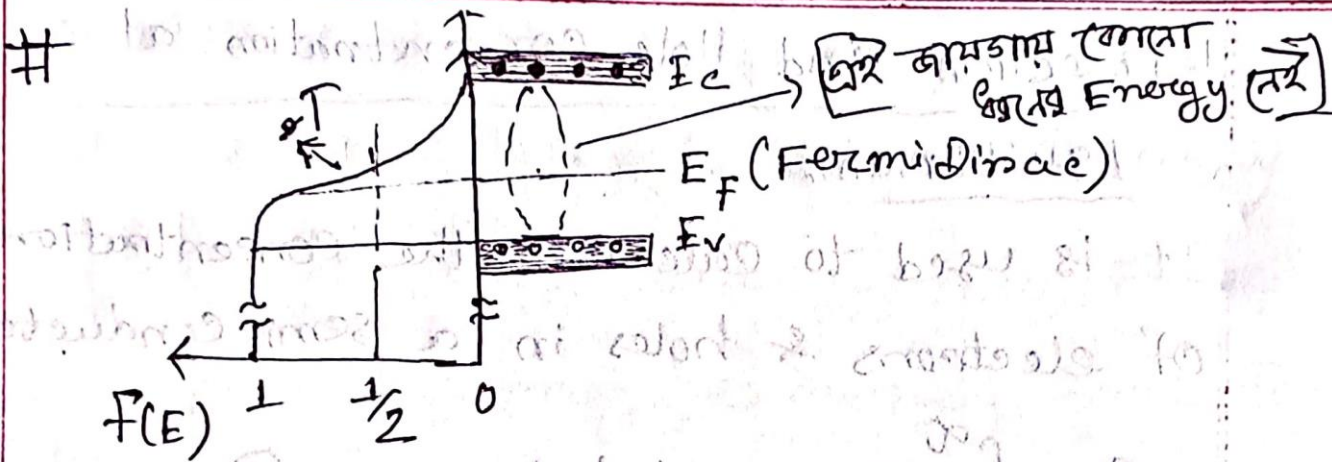 #
Ec
এই জায়গায় কোনো
ধরনের Energy নেই
T
E_F (Fermi Dirac)
Ev
F(E) 1 1/2 0